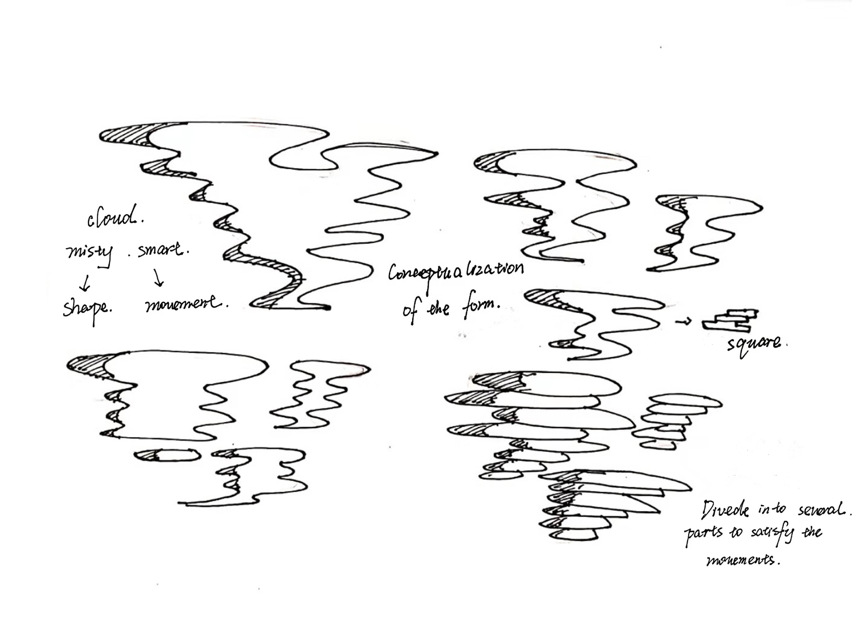 cloud.
misty. smart.
shape. movement.
Conceptualization
of the form.
square.
Divede into several
parts to satisfy the
movements.